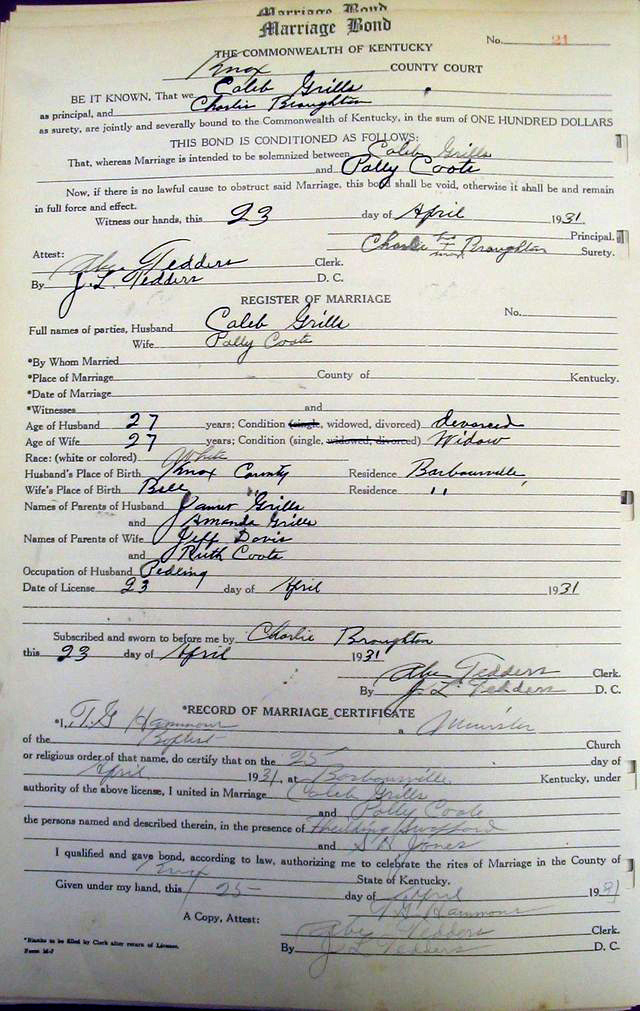 Marriage Bond
Marriage Bond
No. 21
THE COMMONWEALTH OF KENTUCKY
Knox COUNTY COURT
BE IT KNOWN, That we Caleb Grills
as principal, and Charlie Broughton
as surety, are jointly and severally bound to the Commonwealth of Kentucky, in the sum of ONE HUNDRED DOLLARS
THIS BOND IS CONDITIONED AS FOLLOWS:
That, whereas Marriage is intended to be solemnized between Caleb Grills
and Polly Coots
Now, if there is no lawful cause to obstruct said Marriage, this bond shall be void, otherwise it shall be and remain
in full force and effect.
Witness our hands, this 23 day of April 1931
Principal.
Charlie his + mark Broughton Surety.
Attest:
Abe Tedders Clerk.
By J. L. Tedders D. C.
REGISTER OF MARRIAGE
No.
Full names of parties, Husband Caleb Grills
Wife Polly Coots
*By Whom Married
*Place of Marriage County of Kentucky.
*Date of Marriage
*Witnesses and
Age of Husband 27 years; Condition (single, widowed, divorced) divorced
Age of Wife 27 years; Condition (single, widowed, divorced) Widow
Race: (white or colored) White
Husband's Place of Birth Knox County Residence Barbourville
Wife's Place of Birth Bell Residence "
Names of Parents of Husband Grills
and Amanda Grills
Names of Parents of Wife Jeff Davis
and Ruth Coots
Occupation of Husband Pedling
Date of License 23 day of April 1931
Subscribed and sworn to before me by Charlie Broughton
this 23 day of April 1931
Abe Tedders Clerk.
By J. L. Tedders D. C.
*RECORD OF MARRIAGE CERTIFICATE
*I, T. G. Hammons a Minister
of the Baptist Church
or religious order of that name, do certify that on the 25 day of
April 1931, at Barbourville Kentucky, under
authority of the above license, I united in Marriage Caleb Grills
and Polly Coots
the persons named and described therein, in the presence of Swafford
and S. A. Jones
I qualified and gave bond, according to law, authorizing me to celebrate the rites of Marriage in the County of
Knox State of Kentucky.
Given under my hand, this 25 day of April 1931
T. G. Hammons
A Copy, Attest:
Abe Tedders Clerk.
By J. L. Tedders D. C.
*Blanks to be filled by Clerk after return of License.
Form M-7